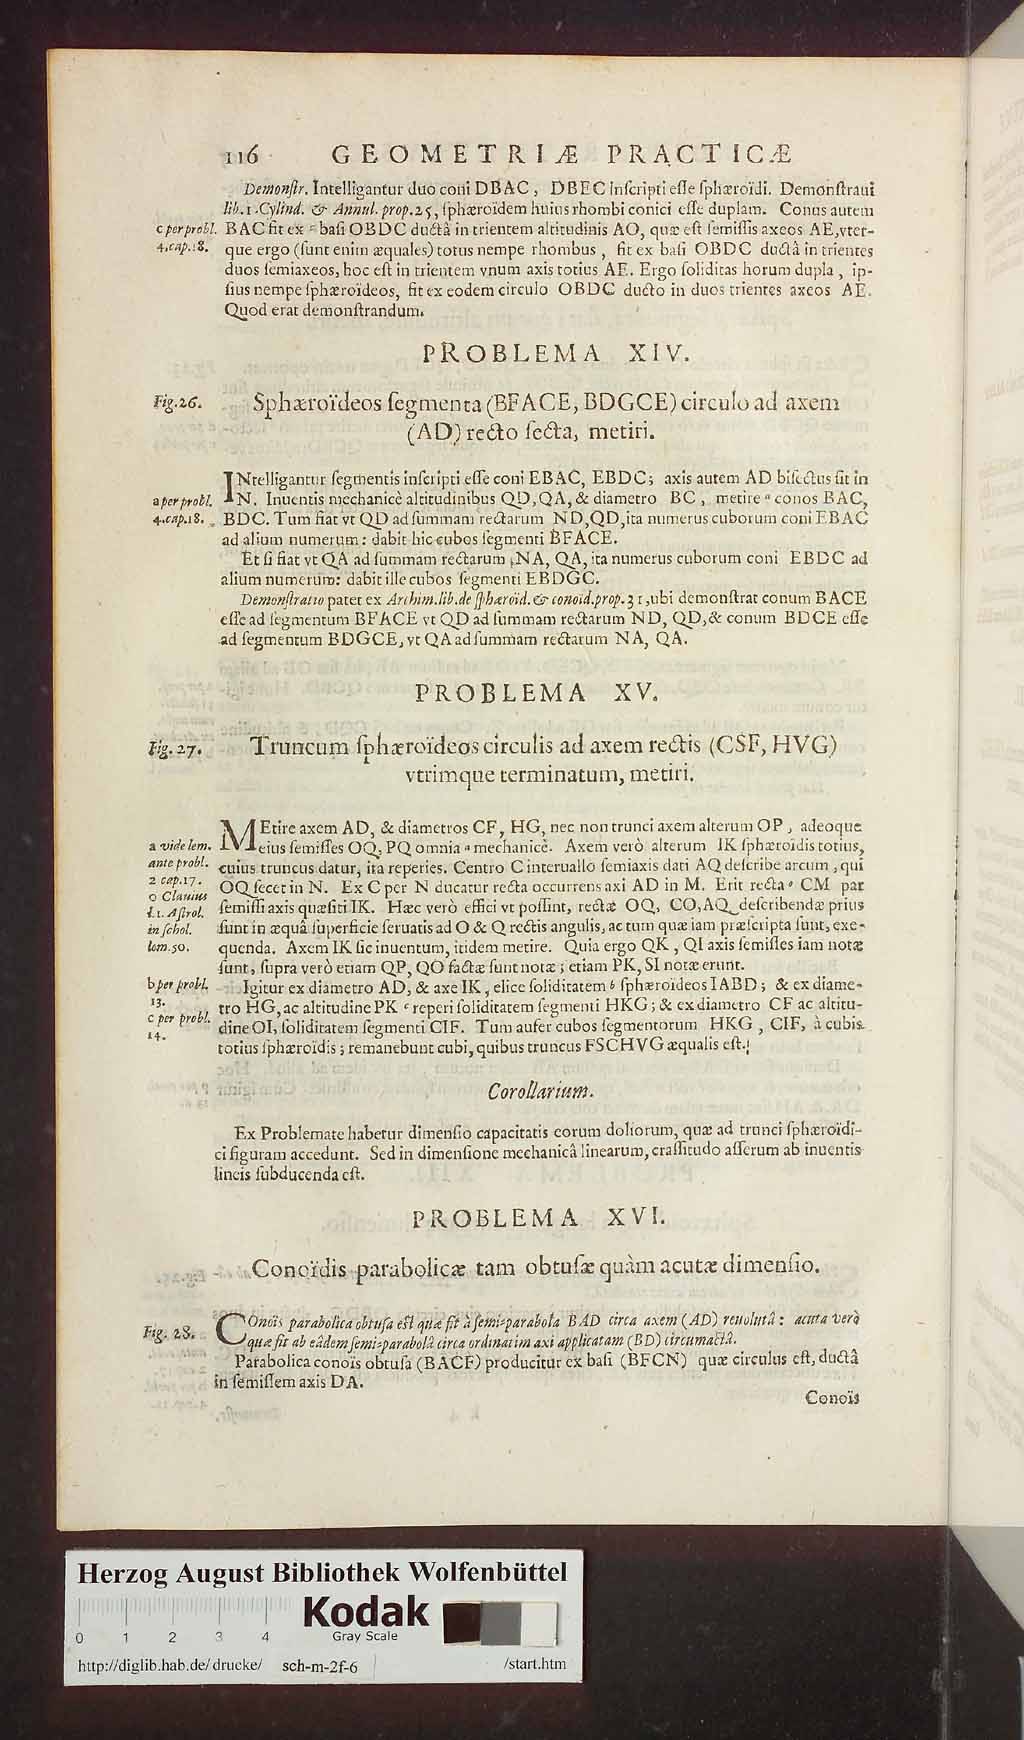 116 GEOMETRIÆ PRACTICÆ
Demonſtr. Intelligantur duo coni DBAC, DBEC inſcripti eſſe ſphæroïdi. Demonſtraui
lib. 1. Cylind. & Annul. prop. 25, ſphæroïdem huius rhombi conici eſſe duplam. Conus autem
c per probl. BAC fit ex c baſi OBDC ductâ in trientem altitudinis AO, quæ eſt ſemiſſis axeos AE, vter-
4. cap. 18. que ergo (ſunt enim æquales) totus nempe rhombus, fit ex baſi OBDC ductâ in trientes
duos ſemiaxeos, hoc eſt in trientem vnum axis totius AE. Ergo ſoliditas horum dupla, ip-
ſius nempe ſphæroïdeos, fit ex eodem circulo OBDC ducto in duos trientes axeos AE.
Quod erat demonſtrandum.
PROBLEMA XIV.
Fig. 26. Sphæroïdeos ſegmenta (BFACE, BDGCE) circulo ad axem
(AD) recto ſecta, metiri.
INtelligantur ſegmentis inſcripti eſſe coni EBAC, EBDC; axis autem AD biſectus ſit in
a per probl. N. Inuentis mechanicè altitudinibus QD, QA, & diametro BC, metire a conos BAC,
4. cap. 18. BDC. Tum fiat vt QD ad ſummam rectarum ND, QD, ita numerus cuborum coni EBAC
ad alium numerum: dabit hic cubos ſegmenti BFACE.
Et ſi fiat vt QA ad ſummam rectarum NA, QA, ita numerus cuborum coni EBDC ad
alium numerum: dabit ille cubos ſegmenti EBDGC.
Demonſtratio patet ex Archim. lib. de ſphæroïd. & conoïd. prop. 31, ubi demonſtrat conum BACE
eſſe ad ſegmentum BFACE vt QD ad ſummam rectarum ND, QD, & conum BDCE eſſe
ad ſegmentum BDGCE, vt QA ad ſummam rectarum NA, QA.
PROBLEMA XV.
Fig. 27. Truncum ſphæroïdeos circulis ad axem rectis (CSF, HVG)
vtrimque terminatum, metiri.
METire axem AD, & diametros CF, HG, nec non trunci axem alterum OP, adeoque
a vide lem. eius ſemiſſes OQ, PQ omnia a mechanicè. Axem verò alterum IK ſphæroïdis totius,
ante probl. cuius truncus datur, ita reperies. Centro C interuallo ſemiaxis dati AQ deſcribe arcum, qui
2 cap. 17. OQ ſecet in N. Ex C per N ducatur recta occurrens axi AD in M. Erit recta o CM par
o Clauius ſemiſſi axis quæſiti IK. Hæc verò effici vt poſſint, rectæ OQ, CO, AQ deſcribendæ prius
l. 1. Aſtrol. ſunt in æquâ ſuperficie ſeruatis ad O & Q rectis angulis, ac tum quæ iam præſcripta ſunt, exe-
in ſchol. quenda. Axem IK ſic inuentum, itidem metire. Quia ergo QK, QI axis ſemiſſes iam notæ
lem. 50. ſunt, ſupra verò etiam QP, QO factæ ſunt notæ; etiam PK, SI notæ erunt.
b per probl. Igitur ex diametro AD, & axe IK, elice ſoliditatem b ſphæroideos IABD; & ex diame-
13. tro HG, ac altitudine PK c reperi ſoliditatem ſegmenti HKG; & ex diametro CF ac altitu-
c per probl. dine OI, ſoliditatem ſegmenti CIF. Tum aufer cubos ſegmentorum HKG, CIF, à cubis
14. totius ſphæroïdis; remanebunt cubi, quibus truncus FSCHVG æqualis eſt.
Corollarium.
Ex Problemate habetur dimenſio capacitatis eorum doliorum, quæ ad trunci ſphæroïdi-
ci figuram accedunt. Sed in dimenſione mechanicâ linearum, craſſitudo aſſerum ab inuentis
lineis ſubducenda eſt.
PROBLEMA XVI.
Conoïdis parabolicæ tam obtuſæ quàm acutæ dimenſio.
Fig. 28. COnoïs parabolica obtuſa eſt quæ fit à ſemi-parabola BAD circa axem (AD) reuoluta: acuta verò
quæ fit ab eâdem ſemi-parabolâ circa ordinatim axi applicatam (BD) circumactâ.
Parabolica conoïs obtuſa (BACF) producitur ex baſi (BFCN) quæ circulus eſt, ductâ
in ſemiſſem axis DA.
Conoïs
Herzog August Bibliothek Wolfenbüttel
Kodak
0 1 2 3 4 Gray Scale
http://diglib.hab.de/drucke/ sch-m-2f-6 /start.htm